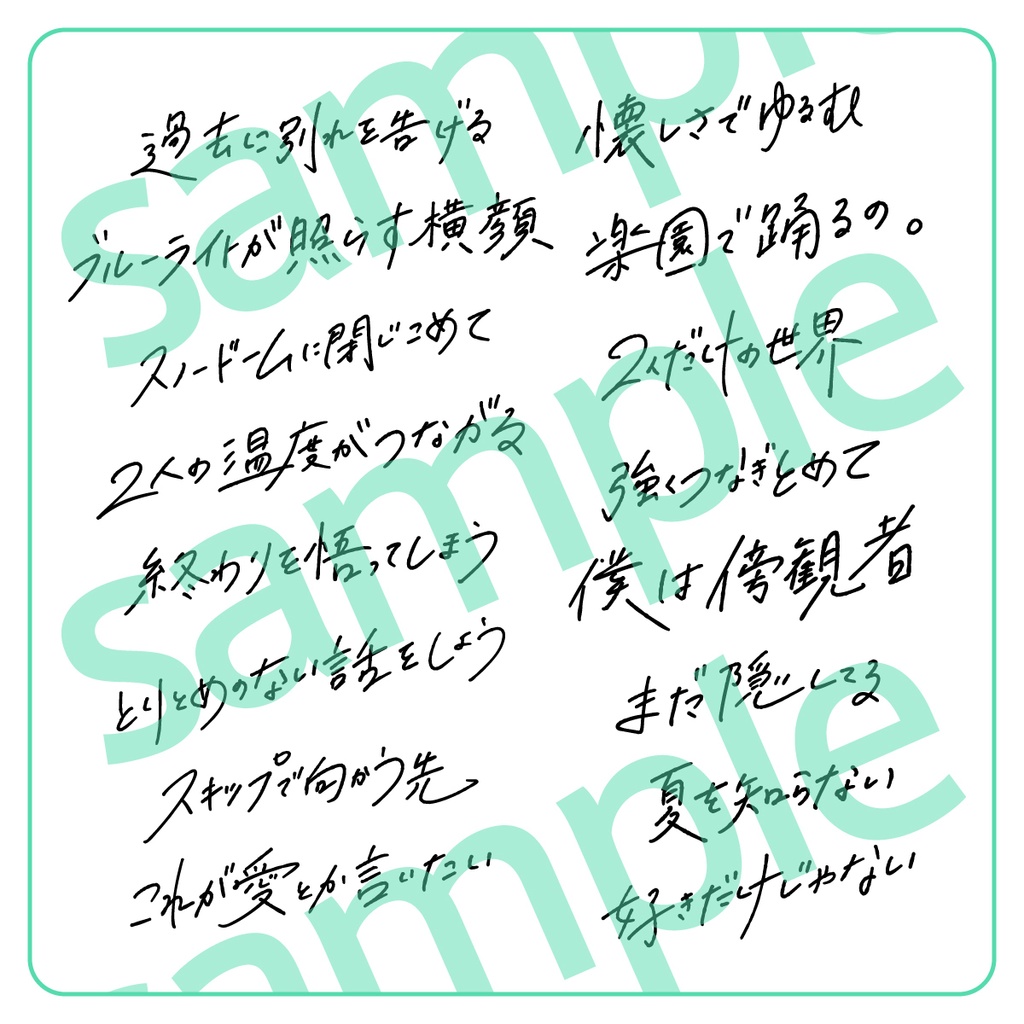 過去に別れを告げる
ブルーライトが照らす横顔
スノードームに閉じこめて
2人の温度がつながる
終わりを悟ってしまう
とりとめのない話をしよう
スキップで向かう先
これが愛とか言いたい
懐しさでゆるむ
楽園で踊るの。
2人だけの世界
強くつなぎとめて
僕は傍観者
まだ隠してる
夏を知らない
好きだけじゃない
sample
sample
sample
sample
sample
sample